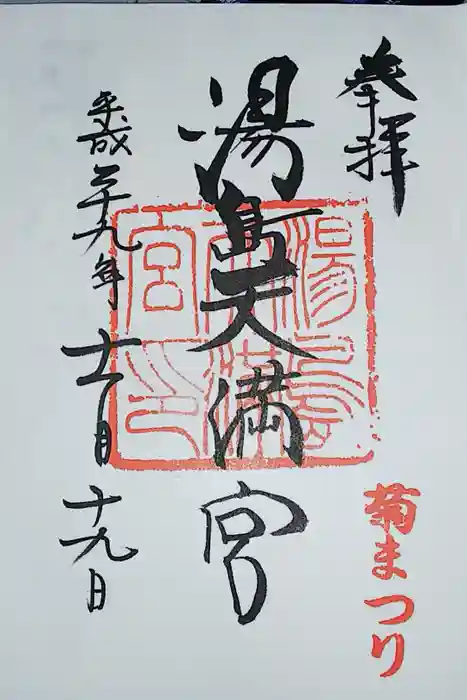 奉拝
菊まつり
湯島天満宮
湯島天満宮印
平成二十九年十一月十九日